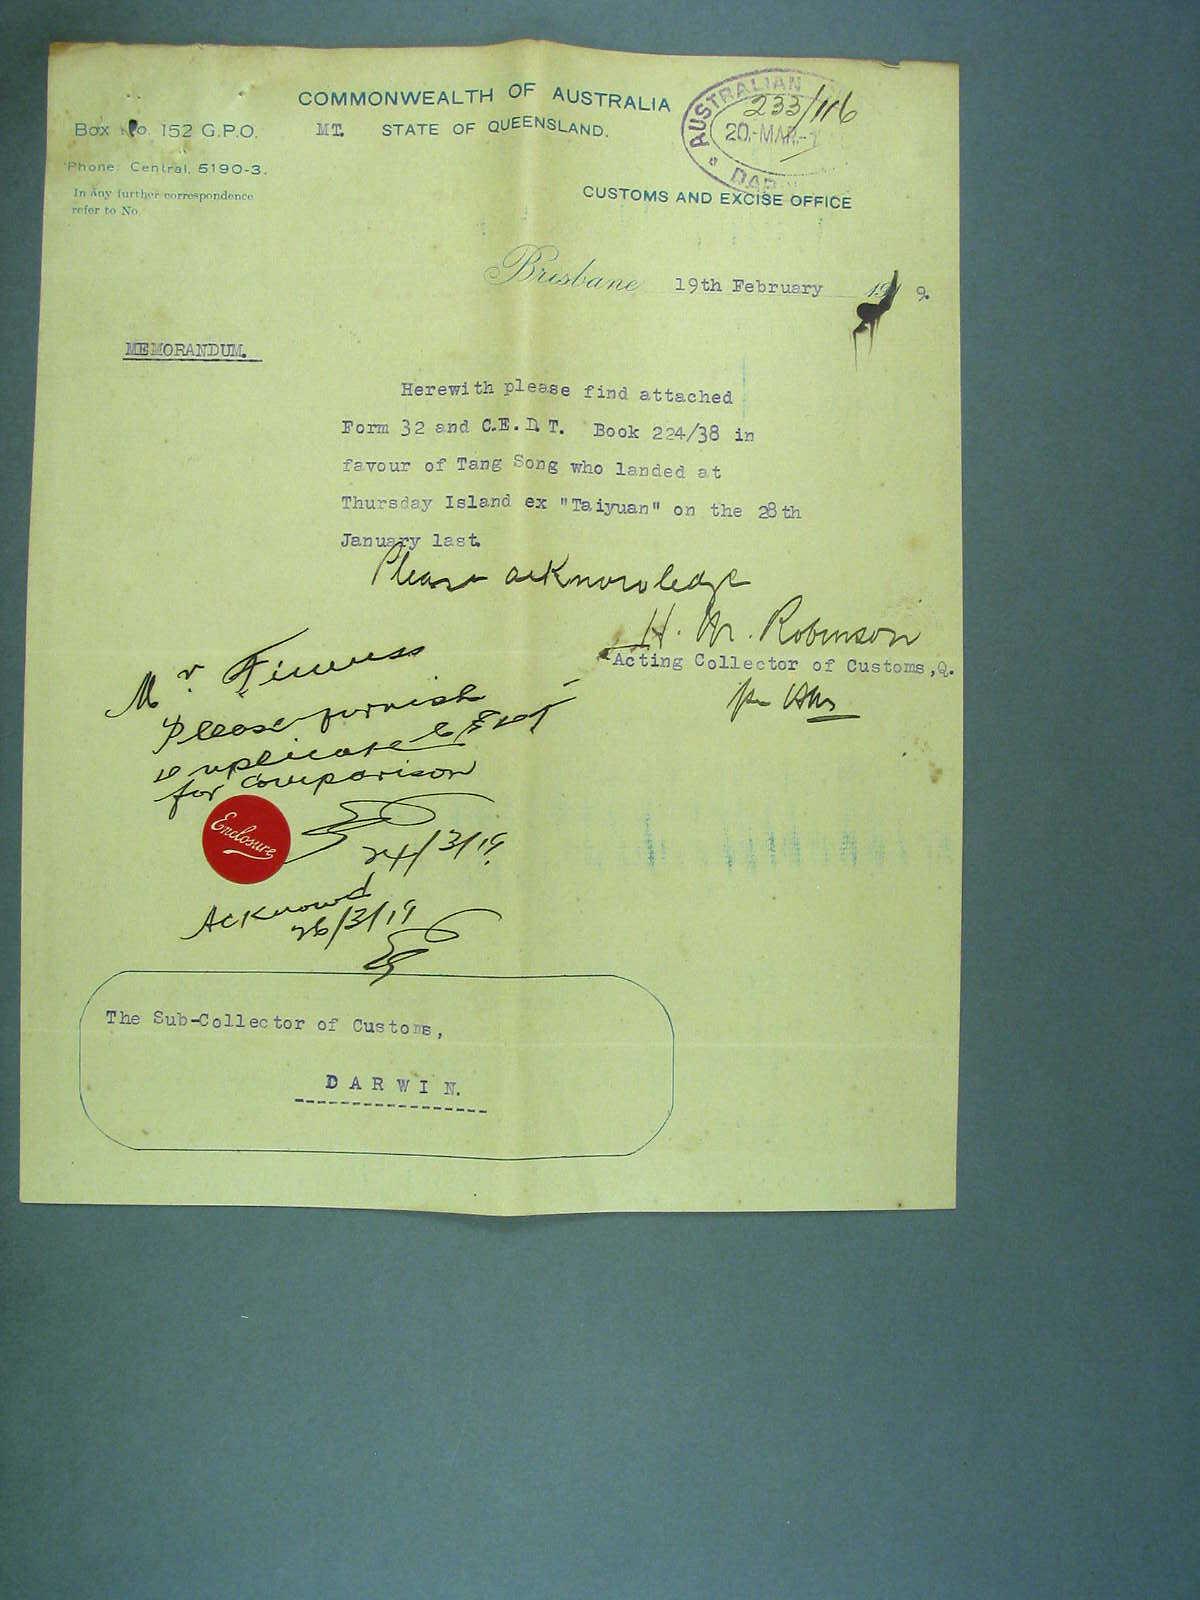 COMMONWEALTH OF AUSTRALIA
AUSTRALIAN
233/116
20.-MAR.-1
DAR
Box No. 152 G.P.O.
MT. STATE OF QUEENSLAND.
Phone: Central, 5190-3.
In Any further correspondence
refer to No.
CUSTOMS AND EXCISE OFFICE
Brisbane 19th February 191 9.
MEMORANDUM.
Herewith please find attached
Form 32 and C.E.D.T. Book 224/38 in
favour of Tang Song who landed at
Thursday Island ex "Taiyuan" on the 28th
January last.
Please acknowledge
H. M. Robinson
Acting Collector of Customs,Q.
per
Mr.
Please furnish
duplicate CEDT
for comparison
Enclosure
24/3/19.
Acknowd
26/3/19
The Sub-Collector of Customs,
DARWIN.